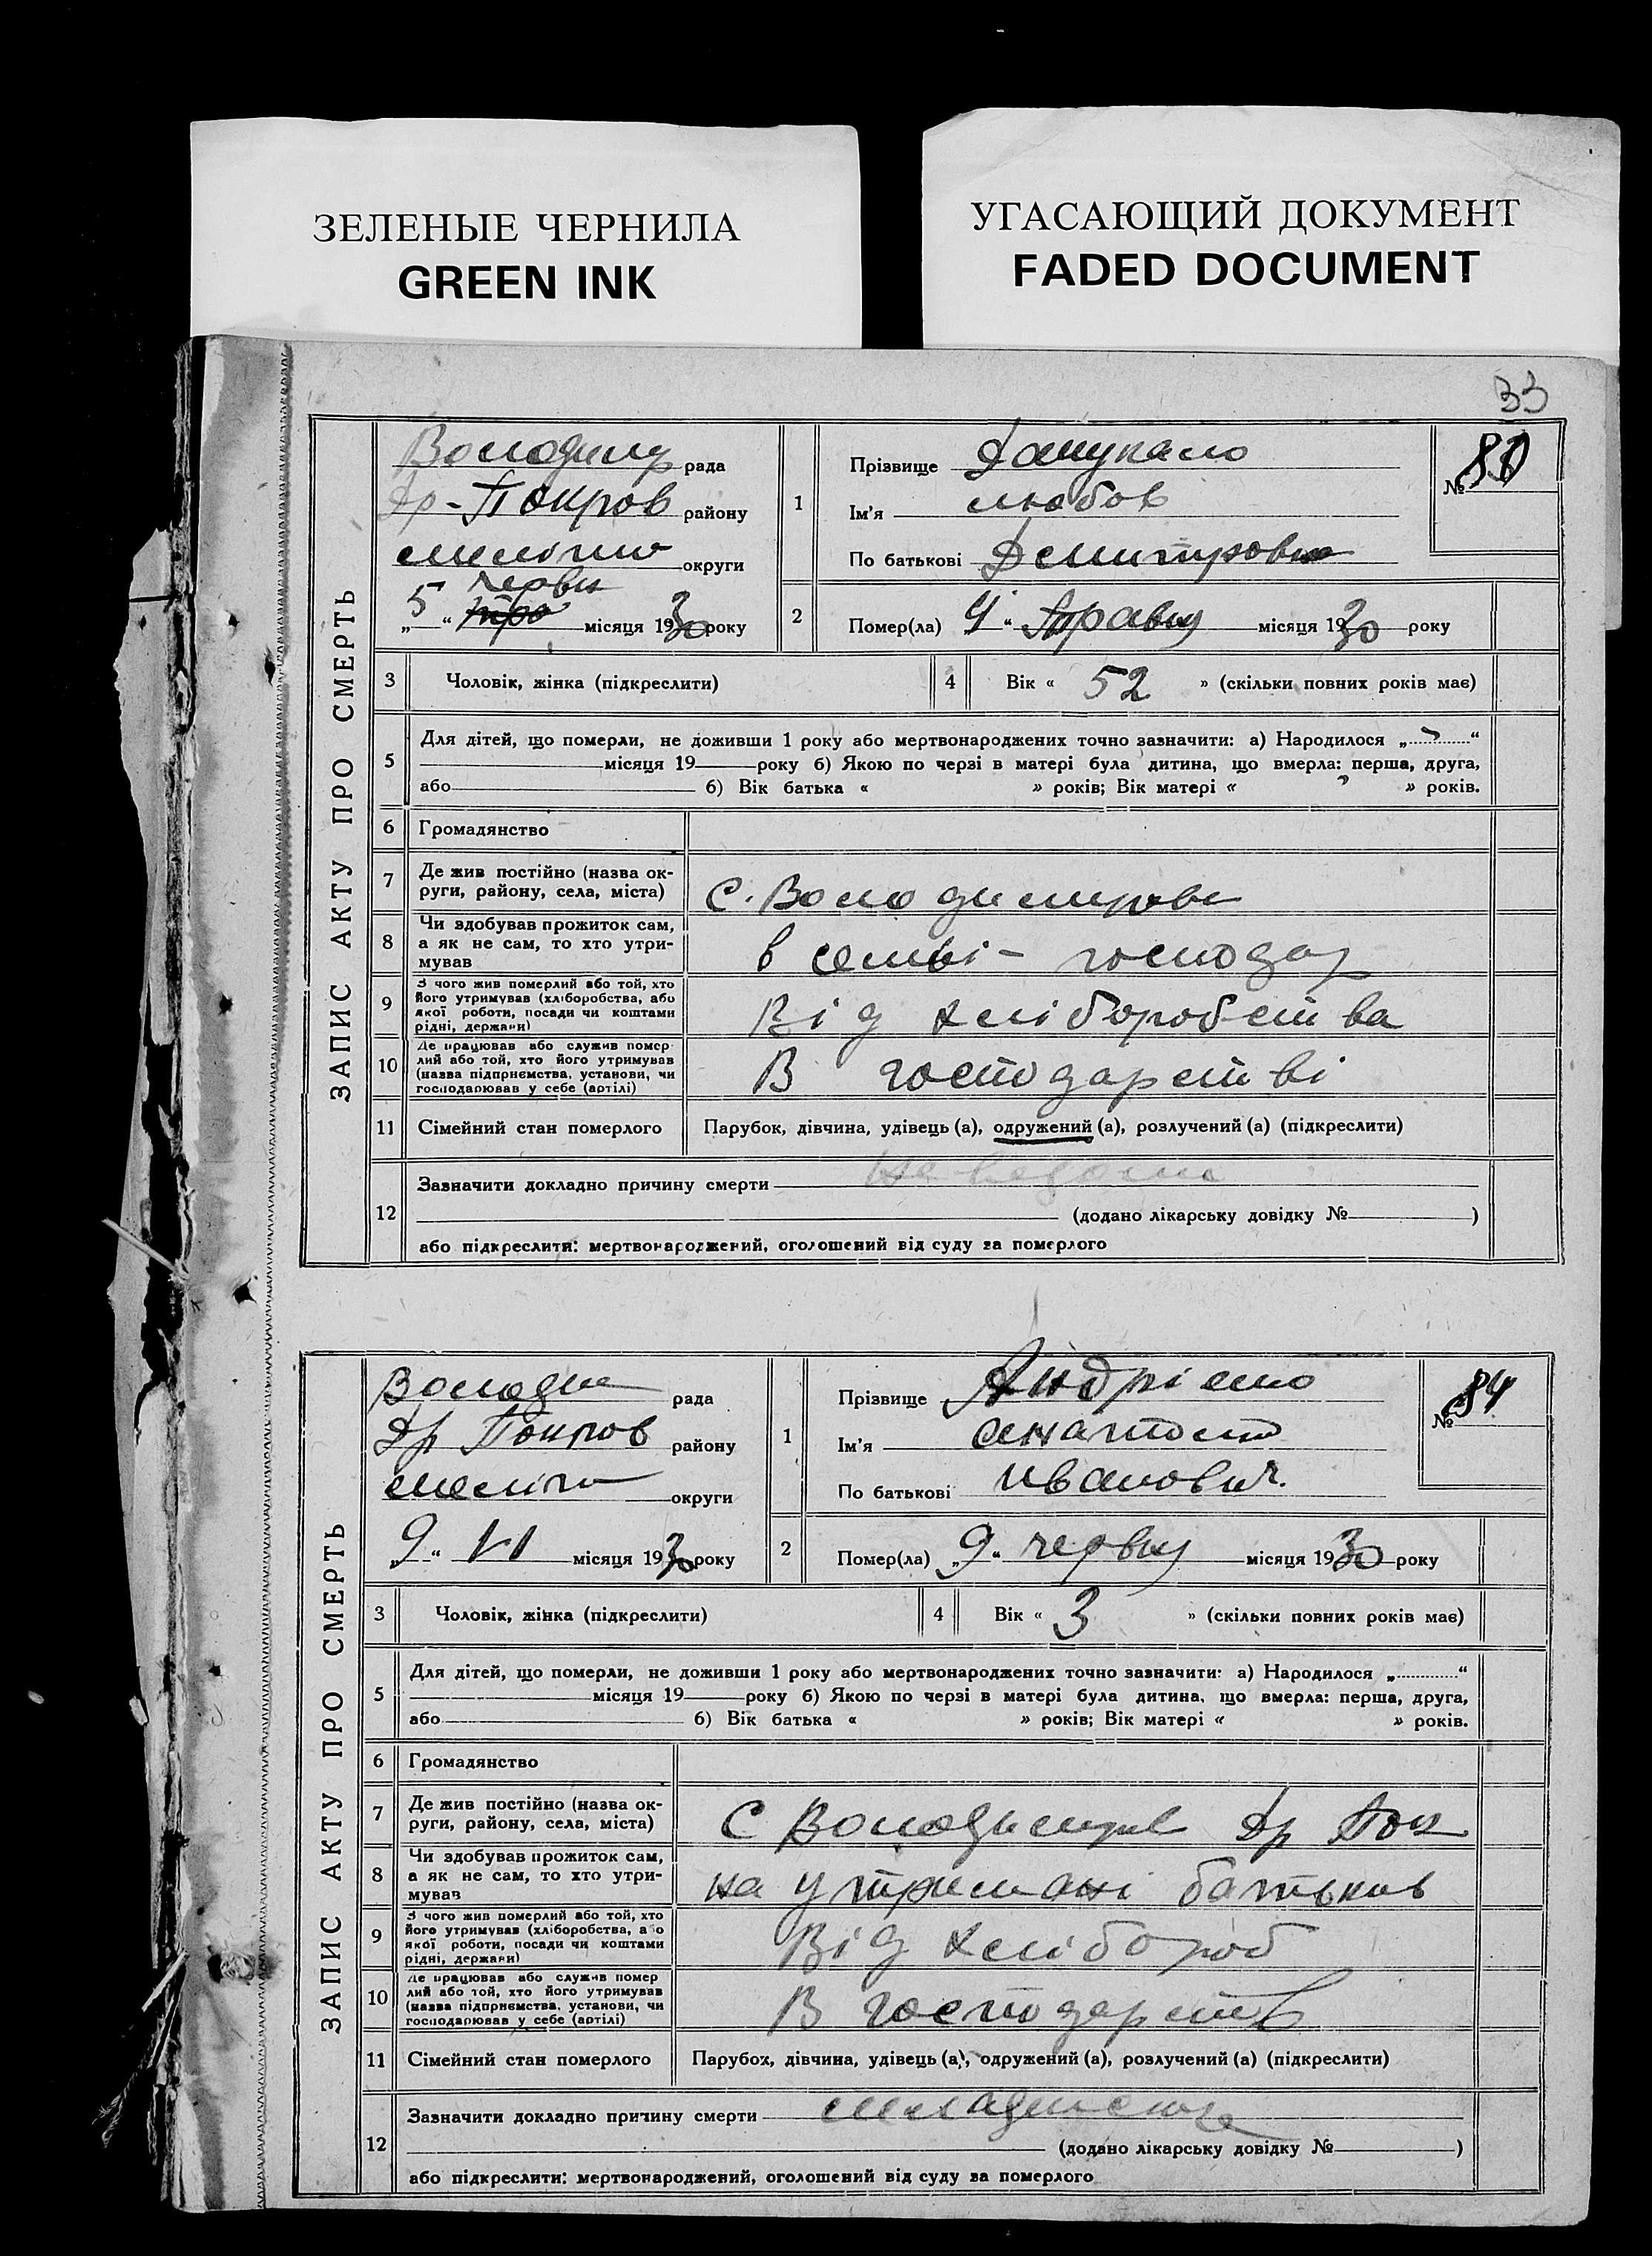 ЗЕЛЕНЫЕ ЧЕРНИЛА
GREEN INK
УГАСАЮЩИЙ ДОКУМЕНТ
FADED DOCUMENT
33
ЗАПИС АКТУ ПРО СМЕРТЬ
Володимр рада
Др-Покров району
меліто округи
„5“ червн місяця 1930 року
1
Прізвище
Ім'я Любов
По батькові Демитровна
№ 80
2
Помер(ла) „4“ Травню місяця 1930 року
3 Чоловік, жінка (підкреслити)
4 Вік « 52 » (скільки повних років має)
5 Для дітей, що померли, не доживши 1 року або мертвонароджених точно зазначити: а) Народилося „ “
місяця 19 року б) Якою по черзі в матері була дитина, що вмерла: перша, друга,
або б) Вік батька « » років; Вік матері « » років.
6 Громадянство
7 Де жив постійно (назва округи, району, села, міста) С. Володимирови
8 Чи здобував прожиток сам, а як не сам, то хто утримував в семьі - господар
9 З чого жив померлий або той, хто його утримував (хліборобства, або якої роботи, посади чи коштами рідні, держави) Від хліборобства
10 Де працював або служив померлий або той, хто його утримував (назва підприємства, установи, чи господарював у себе (артілі) В господарстві
11 Сімейний стан померлого Парубок, дівчина, удівець (а), одружений (а), розлучений (а) (підкреслити)
12 Зазначити докладно причину смерти Не ведома
(додано лікарську довідку № )
або підкреслити: мертвонароджений, оголошений від суду за померлого
ЗАПИС АКТУ ПРО СМЕРТЬ
Володи рада
Др Покров району
меліто округи
„9“ VI місяця 1930 року
1
Прізвище Андрієнко
Ім'я Анатолій
По батькові Иванович.
№ 84
2
Помер(ла) „9“ червню місяця 1930 року
3 Чоловік, жінка (підкреслити)
4 Вік « 3 » (скільки повних років має)
5 Для дітей, що померли, не доживши 1 року або мертвонароджених точно зазначити: а) Народилося „ “
місяця 19 року б) Якою по черзі в матері була дитина, що вмерла: перша, друга,
або б) Вік батька « » років; Вік матері « » років.
6 Громадянство
7 Де жив постійно (назва округи, району, села, міста) С Володимирів Др Пок
8 Чи здобував прожиток сам, а як не сам, то хто утримував на утримані батьків
9 З чого жив померлий або той, хто його утримував (хліборобства, або якої роботи, посади чи коштами рідні, держави) Від хлібороб
10 Де працював або служив померлий або той, хто його утримував (назва підприємства, установи, чи господарював у себе (артілі) В господарств
11 Сімейний стан померлого Парубок, дівчина, удівець (а), одружений (а), розлучений (а) (підкреслити)
12 Зазначити докладно причину смерти младенская
(додано лікарську довідку № )
або підкреслити: мертвонароджений, оголошений від суду за померлого